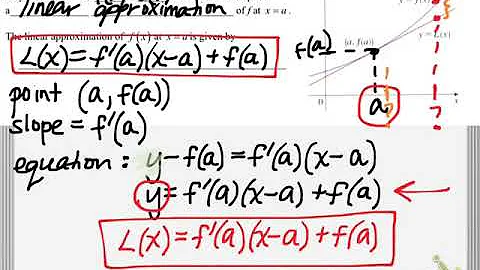 a linear approximation of f at x = a.
The linear approximation of f(x) at x = a is given by
L(x) = f'(a)(x-a) + f(a)
point (a, f(a))
slope = f'(a)
equation: y - f(a) = f'(a)(x-a)
y = f'(a)(x-a) + f(a)
L(x) = f'(a)(x-a) + f(a)
f(a)
(a, f(a))
y = L(x)
O
a
x